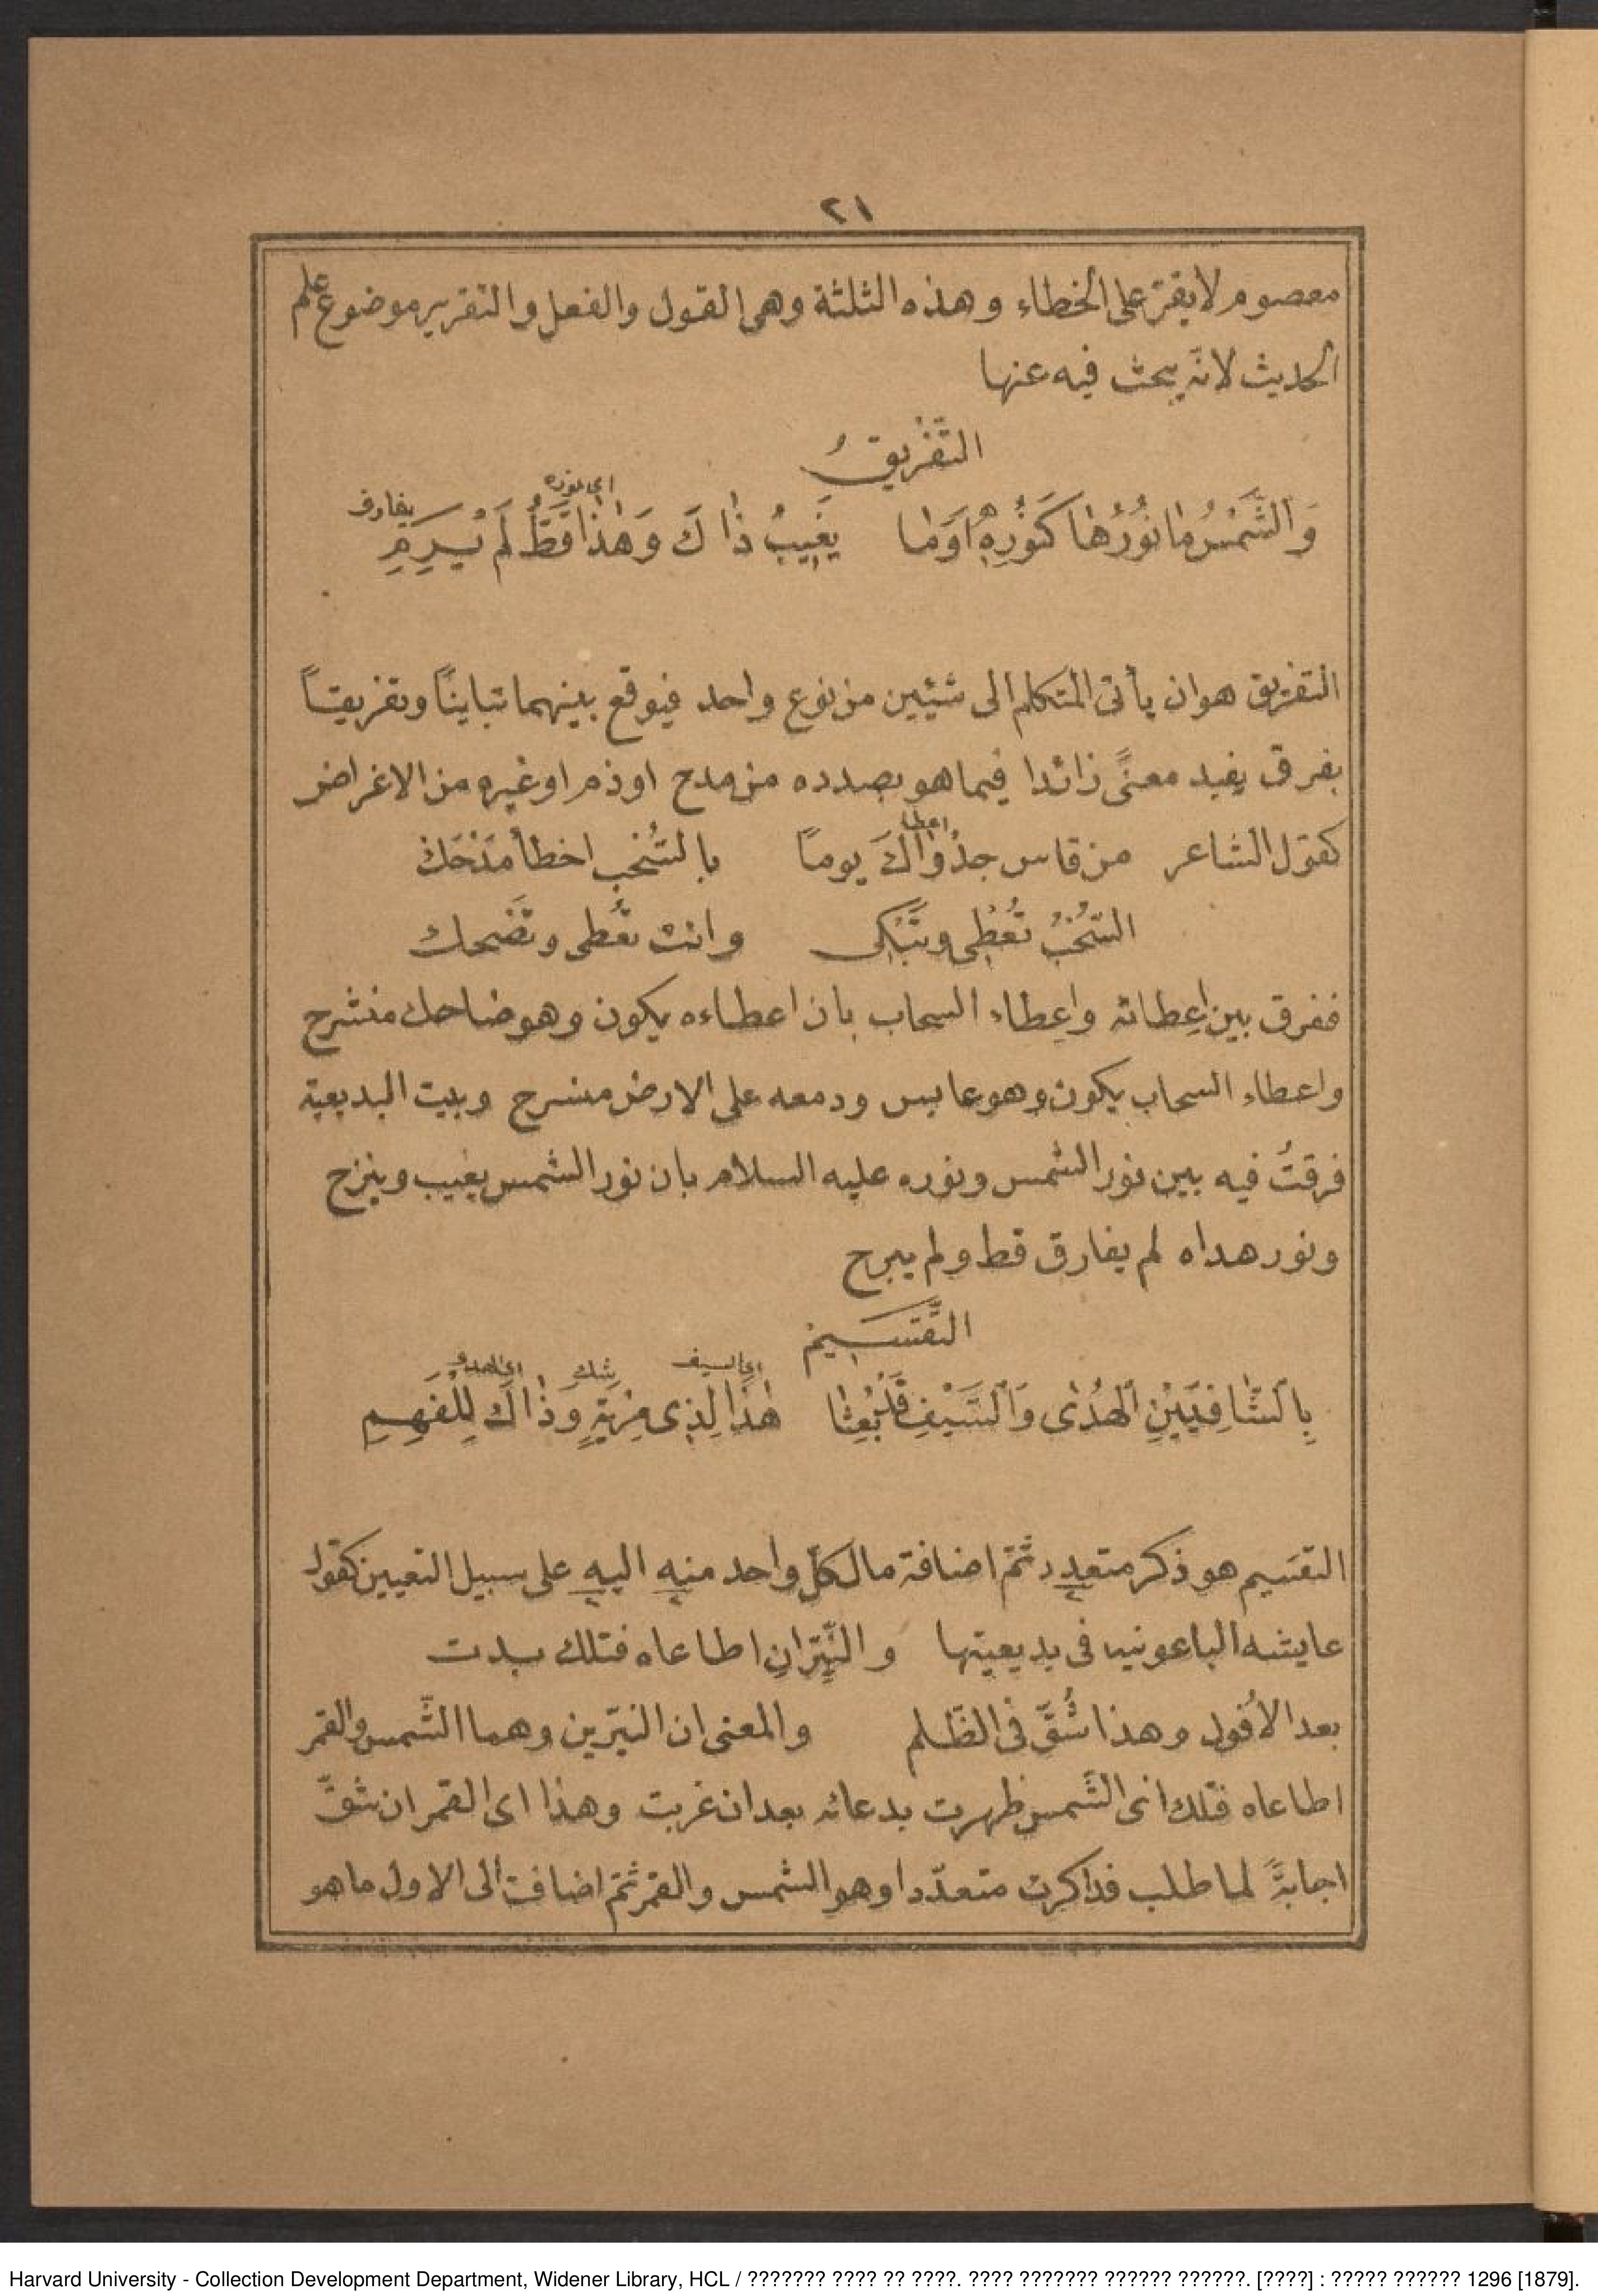 ٢١
معصوم لا يقرّ على الخطاء وهذه الثلثة وهى القول والفعل والتقرير موضوع علم
الحديث لانّه يبحث فيه عنها
التَّفْرِيقُ
اى نوره
يفارق
وَالشَّمْسُ مٰا نُوْرُهٰا كَنُوْرِهٖ اَوَمٰا يَغِيبُ ذٰاكَ وَهٰذٰا قَطُّ لَمْ يَرِمِ
التفريق هو ان يأتى المتكلم الى شئيين من نوع واحد فيوقع بينهما تبايناً وتفريقاً
بفرق يفيد معنًى زائدا فيما هو بصدده من مدح او ذم او غيره من الاغراض
اعطا
كقول الشاعر من قاس جدْوٰاكَ يوماً بالسُّحْب اخطأ مَدْحَكْ
السُّحْبُ تُعْطِى وتَبْكِى وانت تُعْطى وتَضْحك
ففرق بين اِعطائه واِعطاء السحاب بان اعطاءه يكون وهو ضاحك منشرح
واعطاء السحاب يكون وهو عابس ودمعه على الارض منسرح وبيت البديعية
فرقتُ فيه بين نور الشمس ونوره عليه السلام بان نور الشمس يغيب وينزح
ونور هداه لم يفارق قط ولم يبرح
التَّقسيم
اى السيف شك اى الهدى
بِالشّٰافِيَيْنِ الْهُدٰى وَالسَّيْفِ قَدْ بُعِثٰا هٰذٰا لِذِى مِرْيَةٍ وَذٰاكَ لِلْفَهِمِ
التقسيم هو ذكر متعدد ثمّ اضافة ما لكلّ واحد منه اليه على سبيل التعيين كقول
عايشه الباعونيه فى بديعيتها والنَّيِّرانِ اطاعاه فتلك بدت
بعد الأُفول وهذا شُقّ فى الظّلم والمعنى ان النيّرين وهما الشّمس والقمر
اطاعاه فتلك اى الشّمس ظهرت بدعائه بعد ان غربت وهذا اى القمر ان شقّ
اجابةً لما طلب فذكرت متعدّدا وهو الشمس والقمر ثمّ اضافت الى الاول ما هو
Harvard University - Collection Development Department, Widener Library, HCL / ??????? ???? ?? ????. ???? ??????? ?????? ??????. [????] : ????? ?????? 1296 [1879].